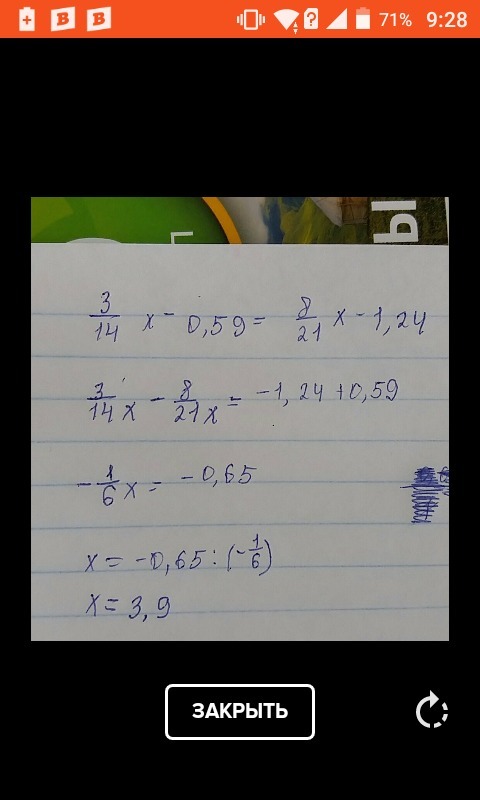 71% 9:28
Ы
3/14 x - 0,59 = 8/21 x - 1,24
3/14 x - 8/21 x = -1,24 + 0,59
-1/6 x = -0,65
x = -0,65 : (-1/6)
x = 3,9
ЗАКРЫТЬ